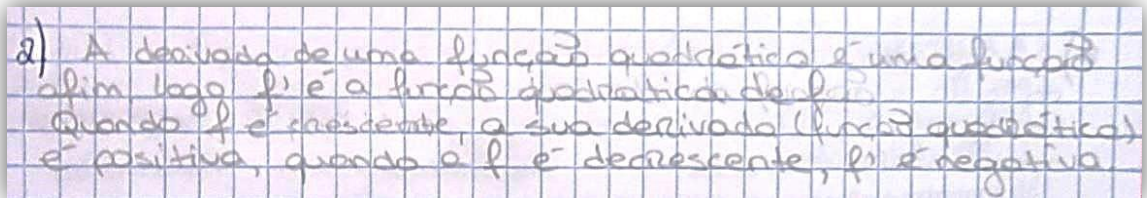 2) A derivada de uma função quadrática é uma função
afim logo f' é a função quadrática de f
Quando f é crescente, a sua derivada (função quadrática)
é positiva, quando a f é decrescente, f' é negativa